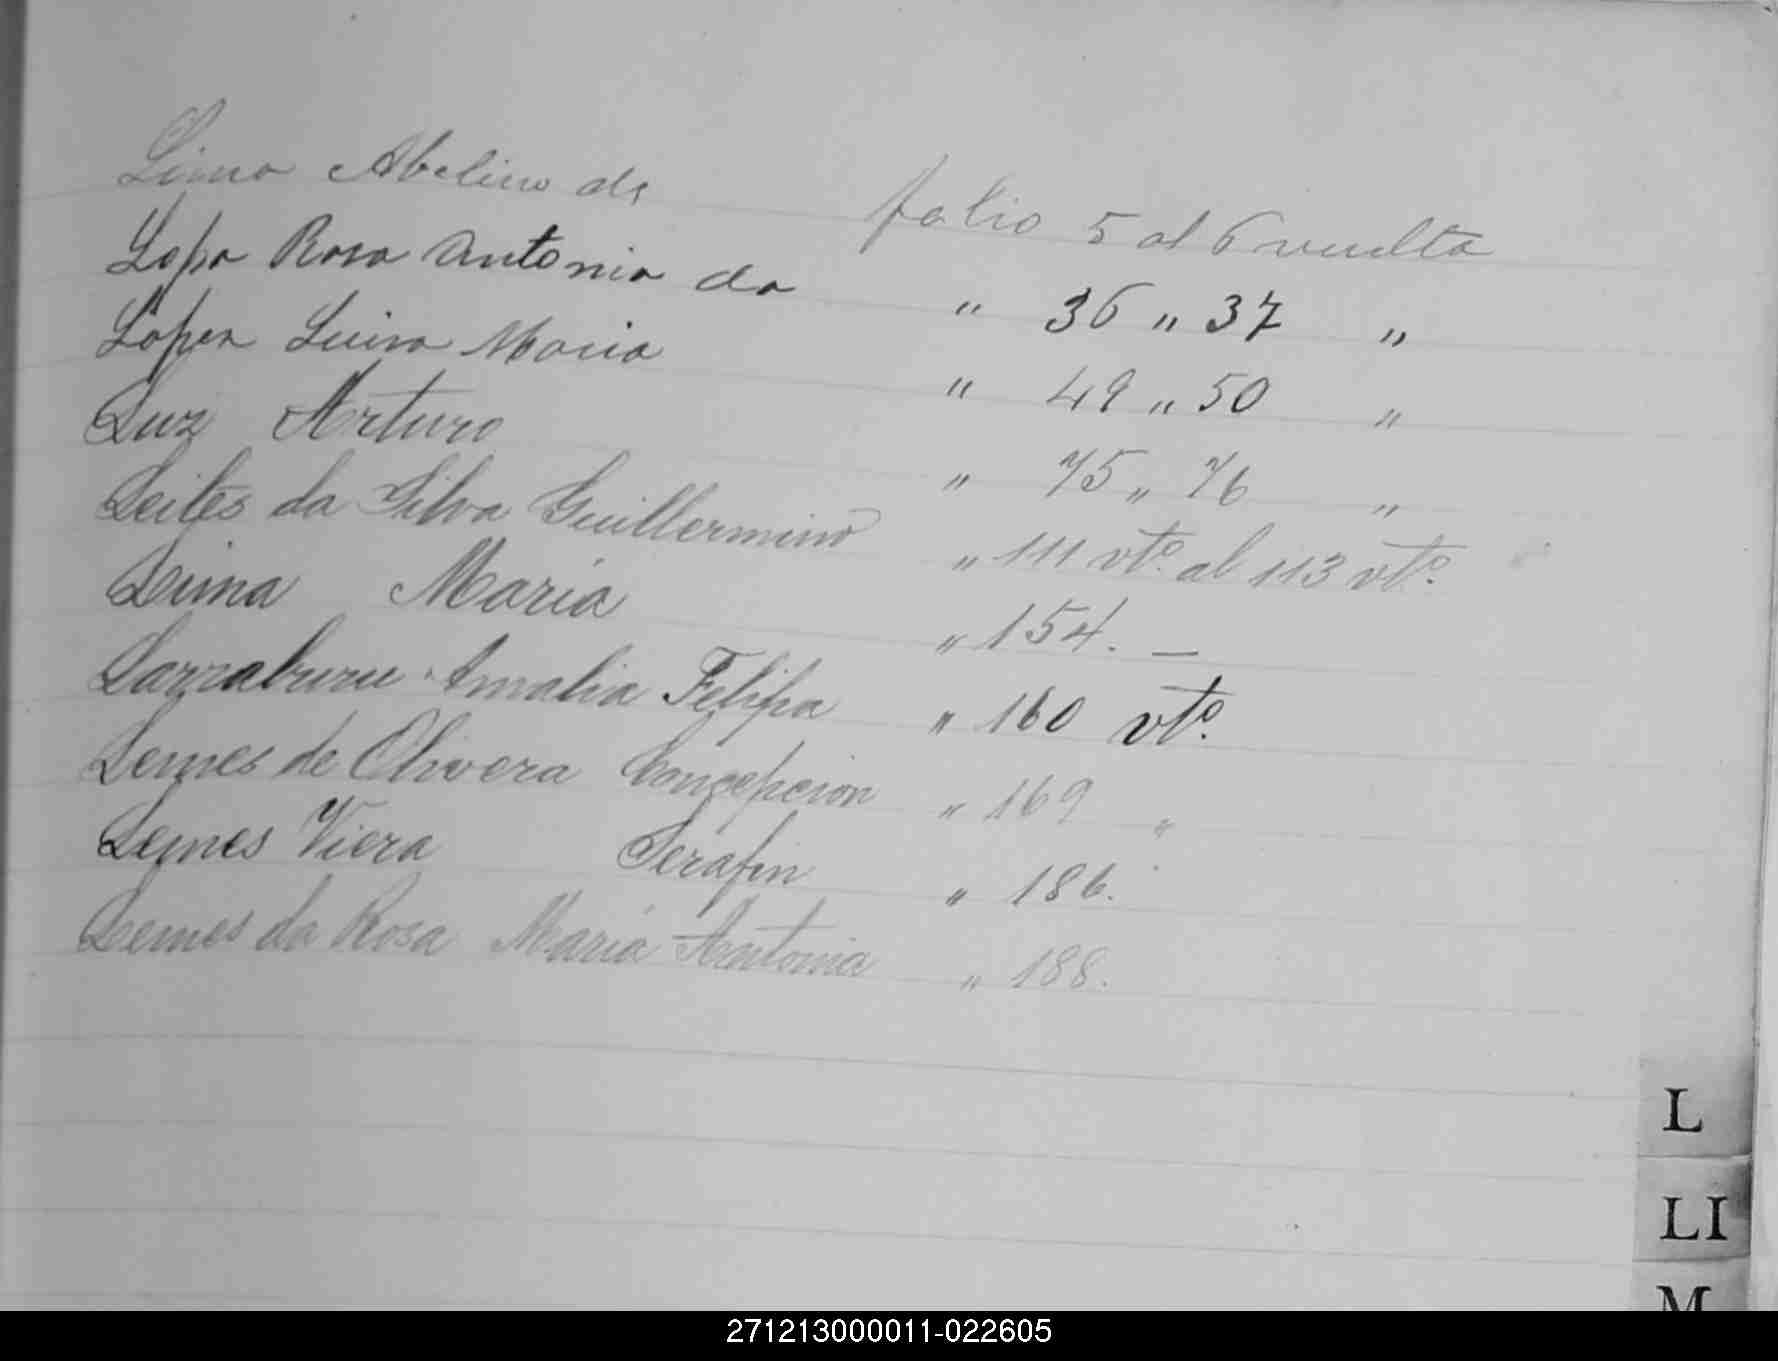 Lima Abelino de folio 5 al 6 vuelta
Lopa Rosa Antonia da " 36 " 37 "
Lopez Luisa Maria " 49 " 50 "
Luz Arturo " 75 " 76 "
Leites da Silva Guillermino " 111 vto. al 113 vto.
Leima María " 154. —
Larzaburu Amalia Felipa " 160 vto.
Lemes de Olivera Concepcion " 169 "
Lemes Viera Serafin " 186.
Lemes da Rosa María Antonia " 188.
L
LI
M
271213000011-022605